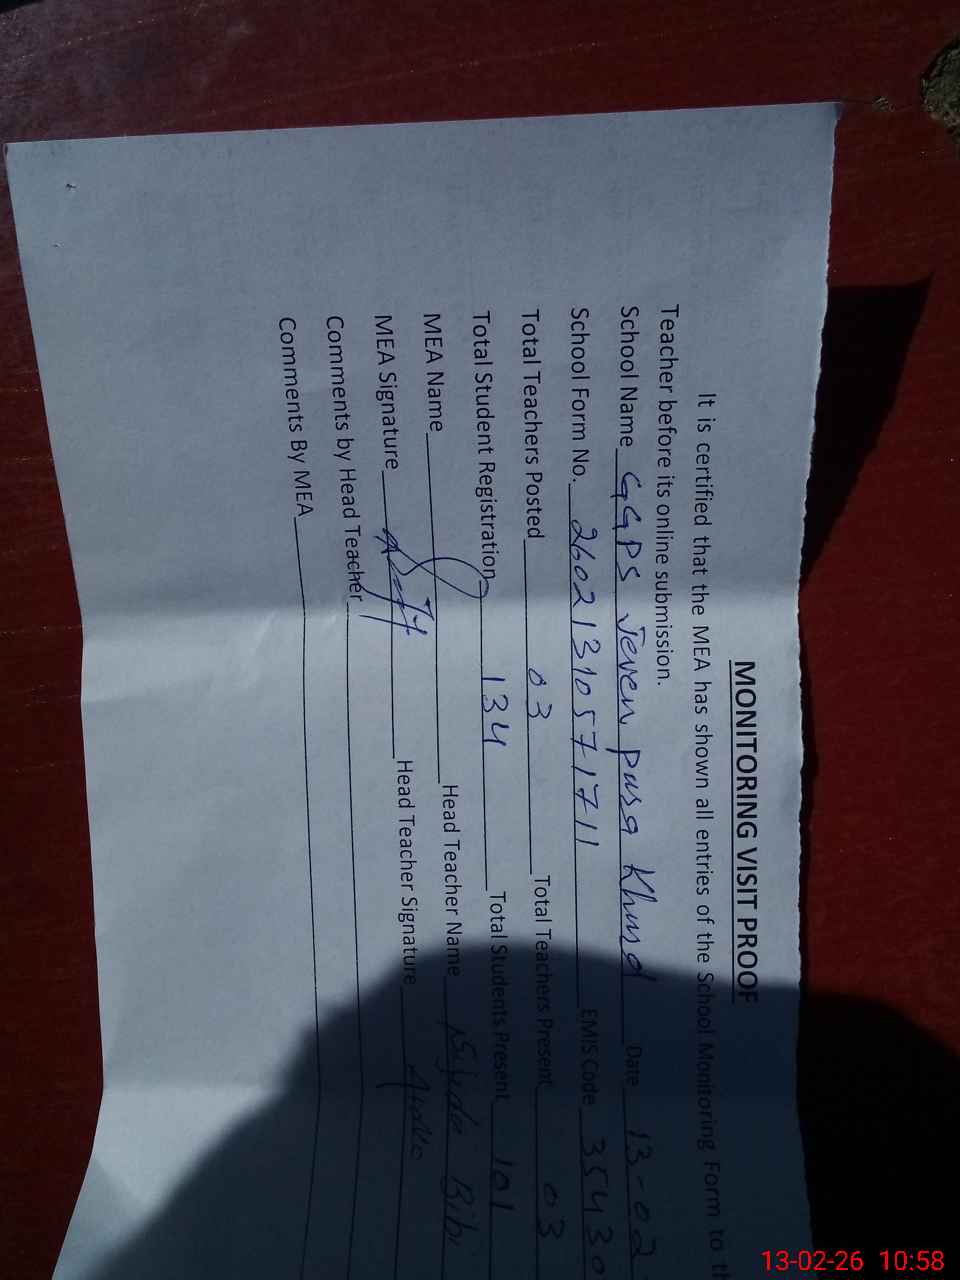 MONITORING VISIT PROOF
It is certified that the MEA has shown all entries of the School Monitoring Form to th
Teacher before its online submission.
School Name GGPS Jeven pura Khurd Date 13-02
School Form No. 260213105717 11 EMIS Code 35430
Total Teachers Posted 03 Total Teachers Present 03
Total Student Registration 134 Total Students Present 101
MEA Name Head Teacher Name Bibi
MEA Signature Head Teacher Signature
Comments by Head Teacher
Comments By MEA
13-02-26 10:58